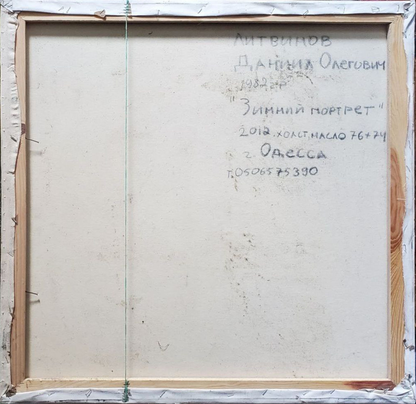 ЛИТВИНОВ
ДАНИИЛ ОЛЕГОВИЧ
1982 гр
"ЗИМНИЙ ПОРТРЕТ"
2012. ХОЛСТ, МАСЛО 76×74
г. ОДЕССА
т. 0506575390